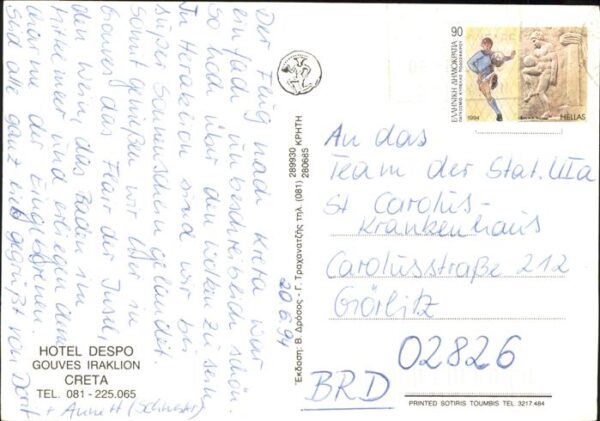 Der Flug nach Kreta war
einfach unbeschreiblich schön.
So hoch über den Wolken zu sein.
In Heraklion sind wir bei
super Sonnenschein gelandet.
Somit genießen wir hier in
Gouves das Flair der Insel,
den Wein, das Baden im
Mittelmeer und erliegen
der Eingeborenen.
Seid alle ganz lieb gegrüßt von
+ Annett (Schwester)
20.6.94
HOTEL DESPO
GOUVES IRAKLION
CRETA
TEL. 081 - 225.065
Έκδοση: Β. Δρόσος - Γ. Τραχανατζής τηλ. (081) 289930 ΚΡΗΤΗ
280685
90
ΕΛΛΗΝΙΚΗ ΔΗΜΟΚΡΑΤΙΑ
1994
HELLAS
An das
Team der Stat. IIIa
St Carolus-
Krankenhaus
Carolusstraße 212
Görlitz
02826
BRD
PRINTED SOTIRIS TOUMBIS TEL. 3217.484